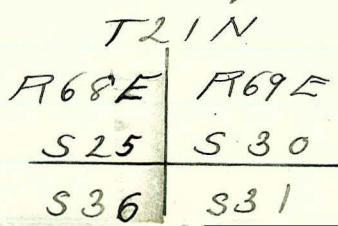 T21N
R68E R69E
S25 S30
S36 S31